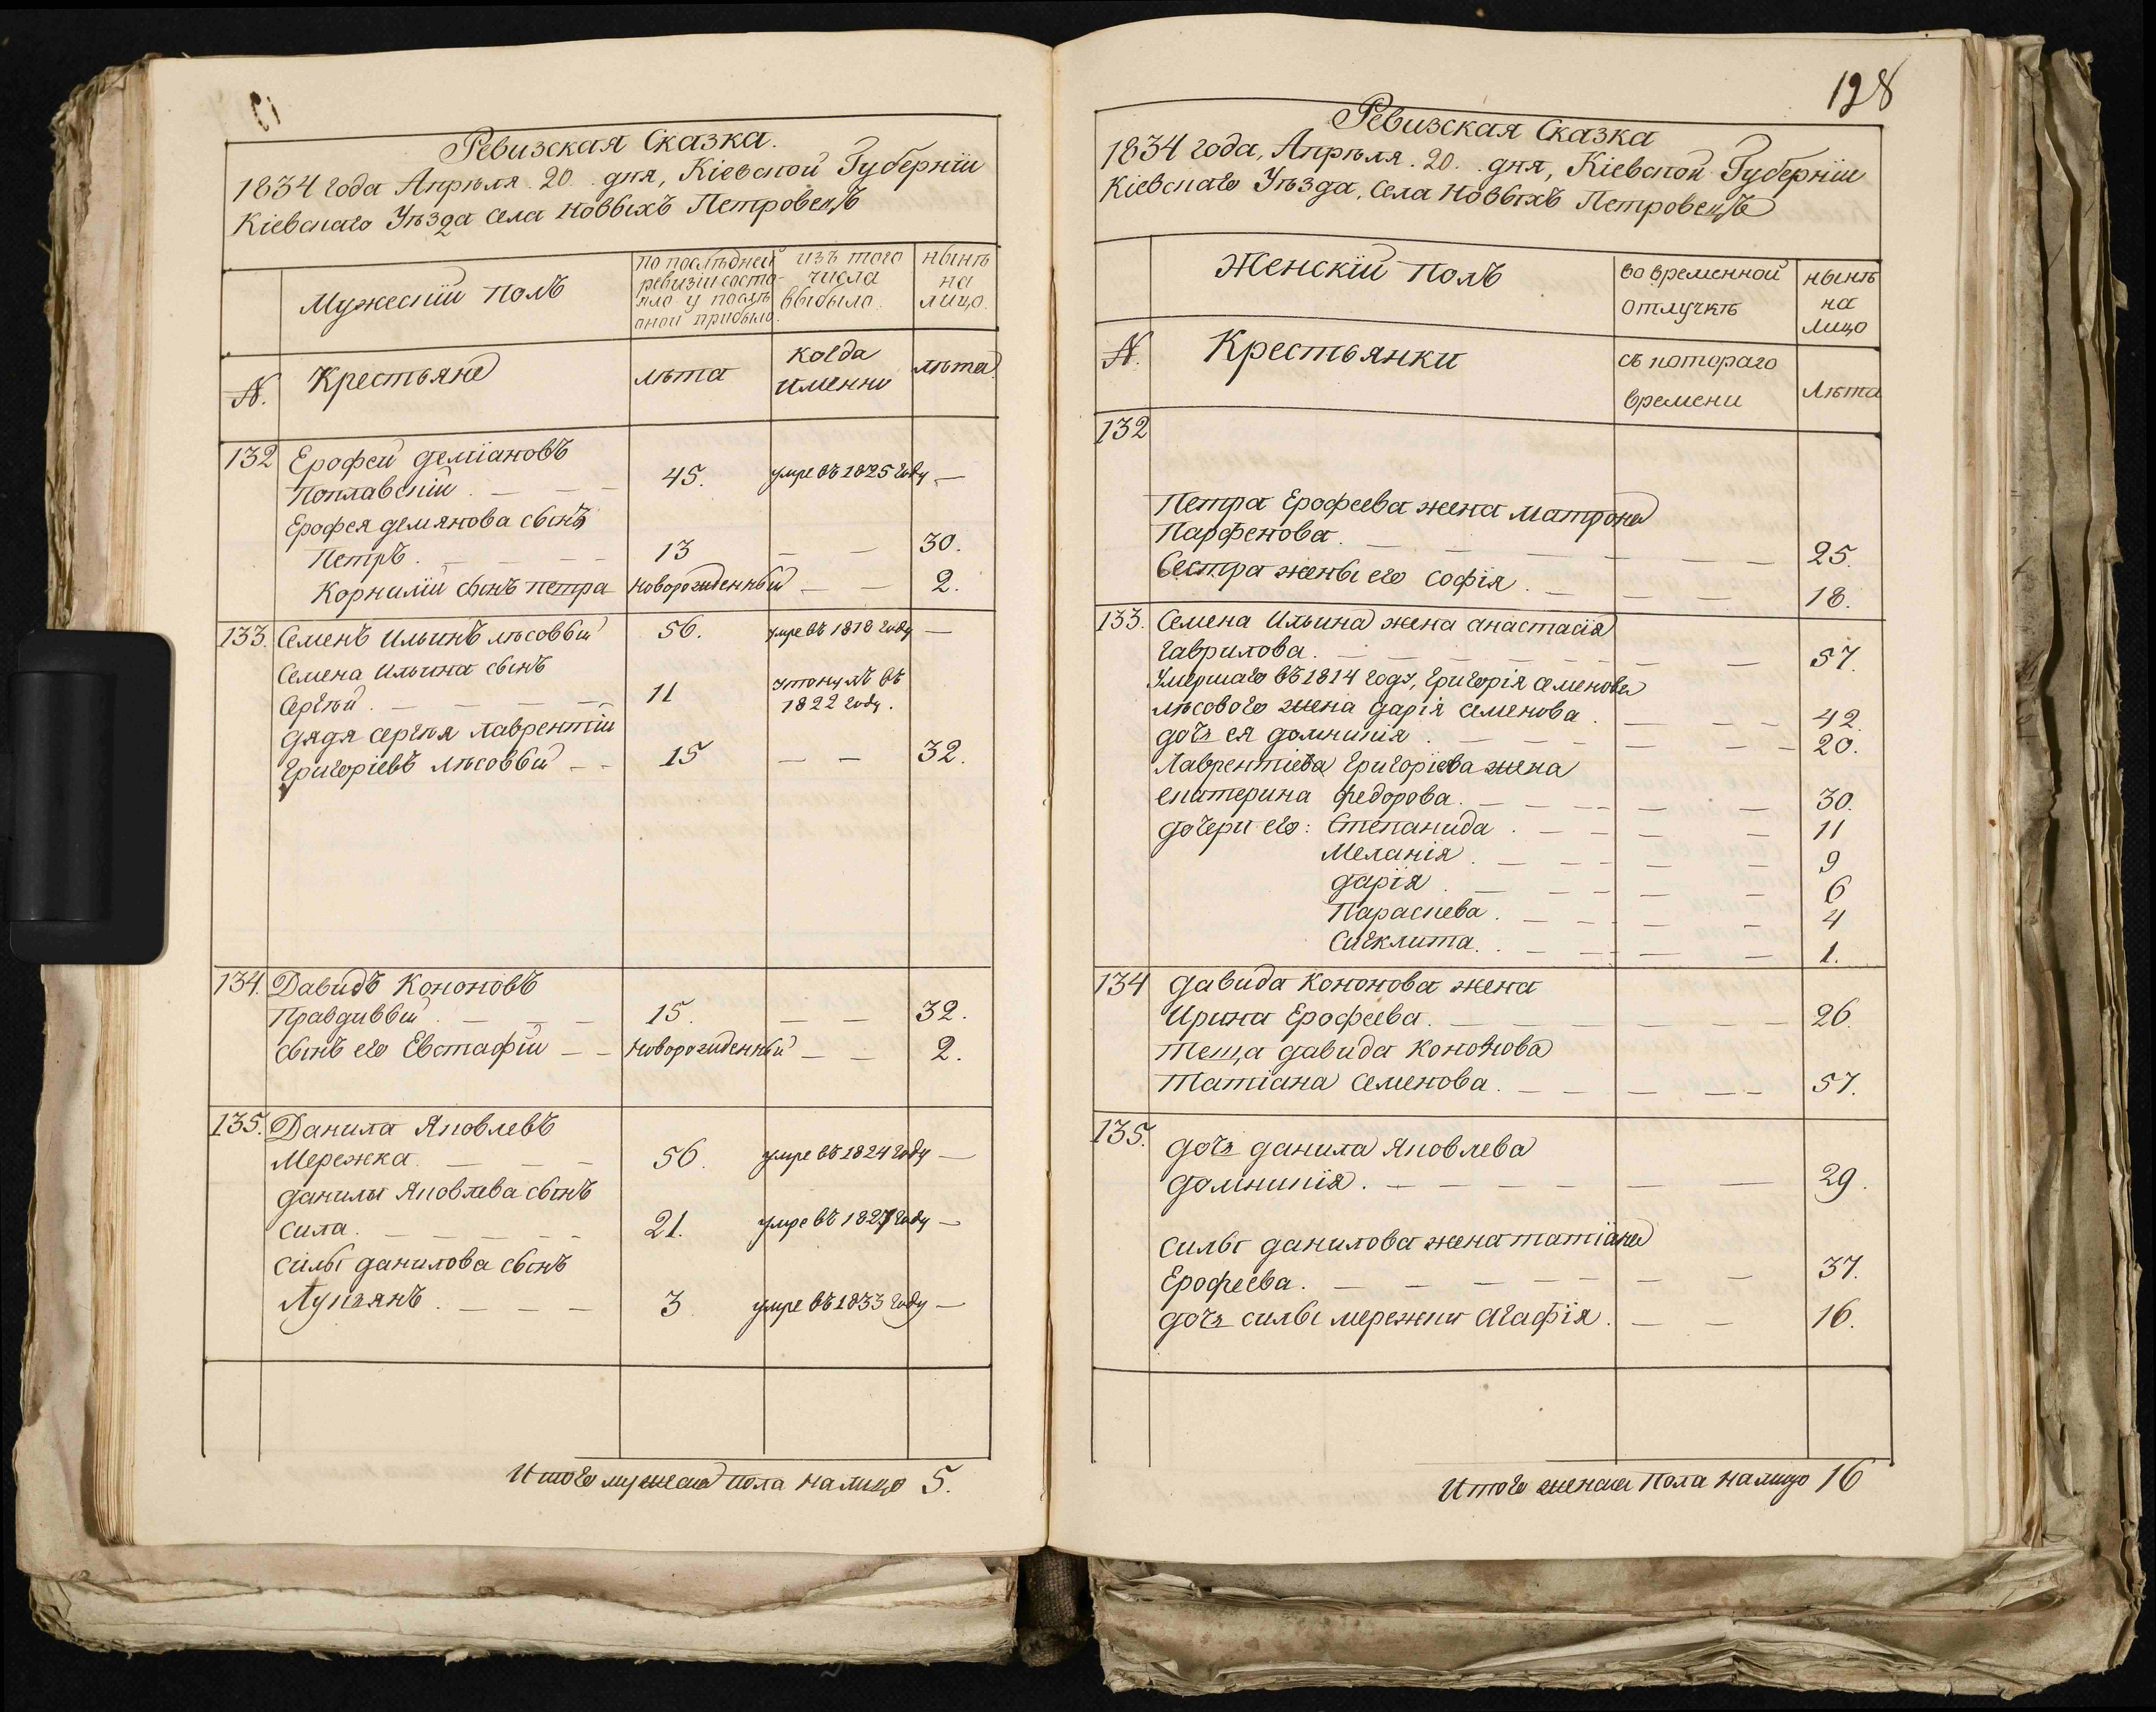 Ревизская Сказка.
1834 года Апрѣля 20 дня, Кіевской Губерніи
Кіевскаго Уѣзда села Новыхъ Петровецъ
Мужескій полъ
по послѣдней
ревизіи состо-
яло и послѣ
оной прибыло.
изъ того
числа
выбыло.
нынѣ
на
лицо.
№.
Крестьяне
лѣта
когда
именно
лѣта
132 Ерофей Деміановъ
Поплавскій 45. умре въ 1825 году
Ерофея Демянова сынъ
Петръ 13 30.
Корнилій сынъ Петра Новорожденный 2.
133. Семенъ Ильинъ Лѣсовый 56. умре въ 1818 году
Семена Ильина сынъ
Сергѣй 11 утонулъ въ
1822 году.
Дядя Сергѣя Лаврентій
Григоріевъ Лѣсовый 15 32.
134. Давидъ Кононовъ
Правдивый 15. 32.
сынъ его Евстафій Новорожденный 2.
135. Данила Яковлевъ
Мережка 56. умре въ 1824 году
Данилы Яковлева сынъ
Сила 21. умре въ 1827 году
Силы Данилова сынъ
Лукьянъ 3 умре въ 1833 году
Итого мужеска пола налицо 5.
128
Ревизская Сказка
1834 года, Апрѣля 20. дня, Кіевской Губерніи
Кіевскаго Уѣзда, села Новыхъ Петровецъ
Женскій полъ
во временной
отлучкѣ
нынѣ
на
лицо
№.
Крестьянки
съ котораго
времени
Лѣта
132
Петра Ерофеева жена Матрона
Парфенова. 25.
Сестра жены его Софія. 18.
133. Семена Ильина жена Анастасія
Гаврилова. 57.
Умершаго въ 1814 году, Григорія Семенова
Лѣсового жена Дарія Семенова. 42.
дочь ея Домникія. 20.
Лаврентіева Григоріева жена
Екатерина Федорова. 30.
дочери его: Степанида. 11
Меланія. 9
Дарія. 6
Параскева. 4
Сигклита. 1.
134 Давида Кононова жена
Ирина Ерофеева. 26.
Теща Давида Кононова
Татіана Семенова. 57.
135. дочь Данила Яковлева
Домникія. 29.
Силы Данилова жена Татіана
Ерофеева. 37.
дочь Силы Мережки Агафія. 16.
Итого женска пола налицо 16